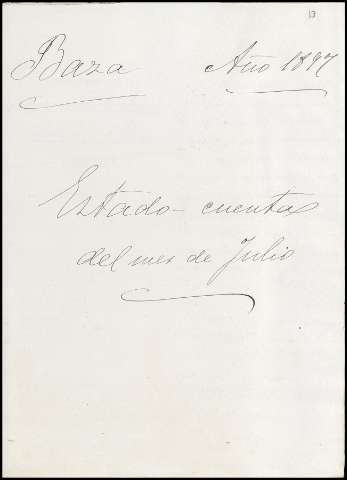 13
Baza Año 1897
Estado cuentas
del mes de Julio